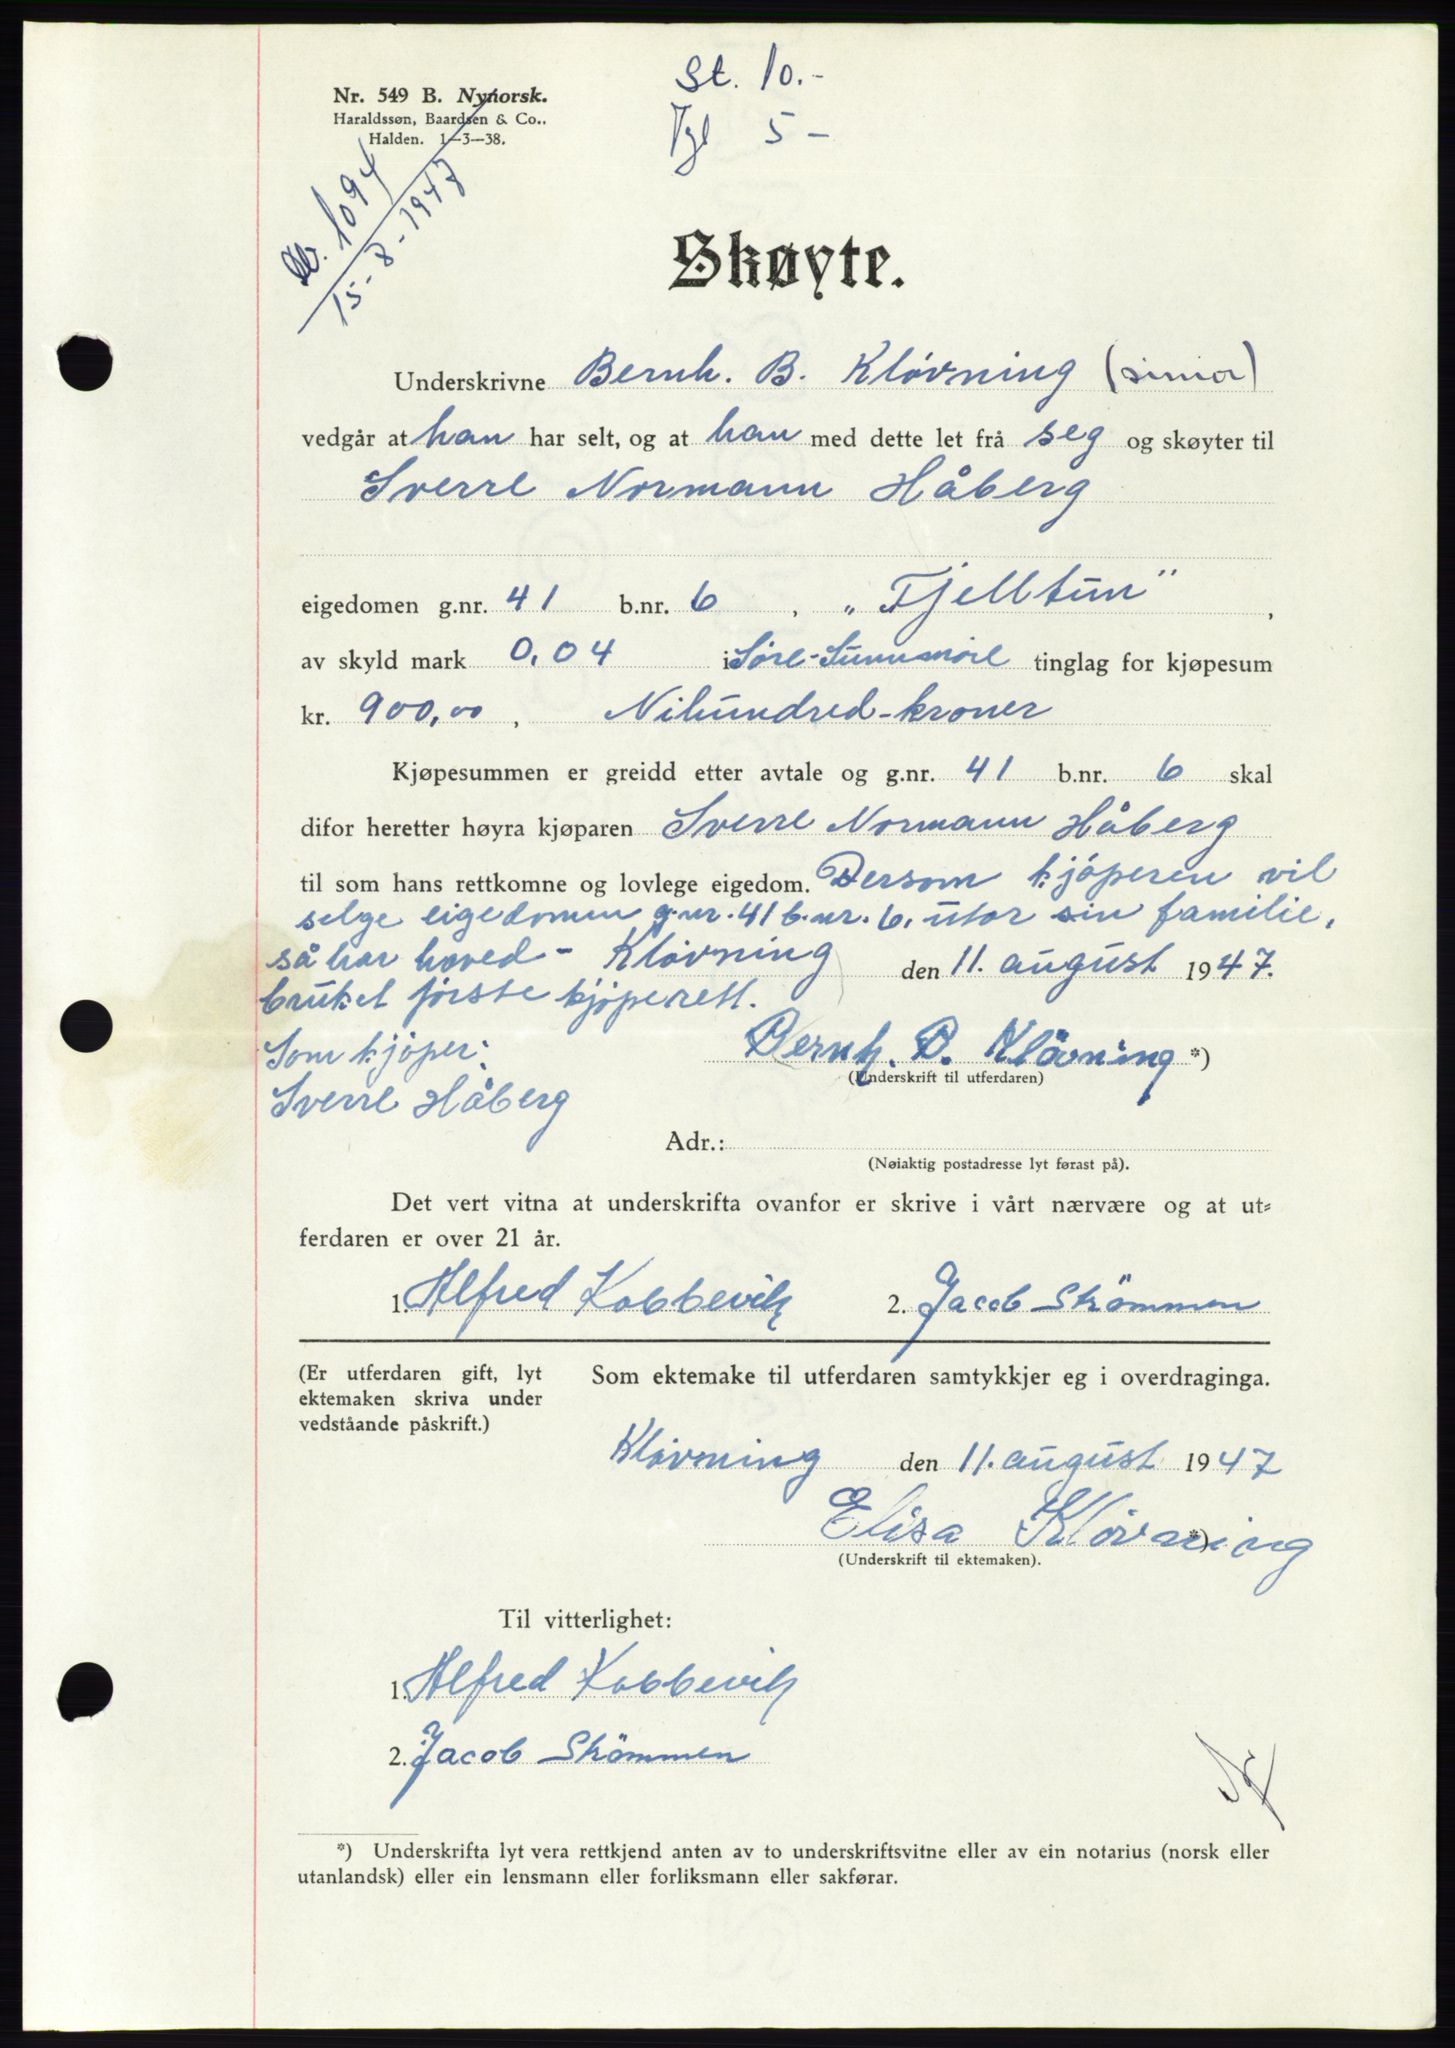 St. 10.-
Tgl 5 -
Nr. 549 B. Nynorsk.
Haraldssøn, Baardsen & Co..
Halden. 1-3-38.
1094
15-8-1947
Skøyte.
Underskrivne Bernh. B. Klövning (sinior)
vedgår at han har selt, og at han med dette let frå seg og skøyter til
Sverre Normann Håberg
eigedomen g.nr. 41 b.nr. 6 , „Fjelltun" ,
av skyld mark 0,04 i Söre-Sunnmöre tinglag for kjøpesum
kr. 900,00 , Nihundred-kroner
Kjøpesummen er greidd etter avtale og g.nr. 41 b.nr. 6 skal
difor heretter høyra kjøparen Sverre Normann Håberg
til som hans rettkomne og lovlege eigedom. Dersom kjöperen vil
selge eigedomen g.nr. 41 b.nr. 6, utor sin familie,
så har hoved- Klövning den 11. august 1947.
bruket förste kjöperett.
Som kjöper: Bernh. B. Klövning *)
(Underskrift til utferdaren)
Sverre Håberg
Adr.:
(Nøiaktig postadresse lyt førast på).
Det vert vitna at underskrifta ovanfor er skrive i vårt nærvære og at ut=
ferdaren er over 21 år.
1. Alfred Kobbevik 2. Jacob Skömmen
(Er utferdaren gift, lyt Som ektemake til utferdaren samtykkjer eg i overdraginga.
ektemaken skriva under
vedståande påskrift.)
Klövning den 11. august 1947
Elisa Klövning *)
(Underskrift til ektemaken).
Til vitterlighet:
1. Alfred Kobbevik
2. Jacob Skömmen
*) Underskrifta lyt vera rettkjend anten av to underskriftsvitne eller av ein notarius (norsk eller
utanlandsk) eller ein lensmann eller forliksmann eller sakførar.